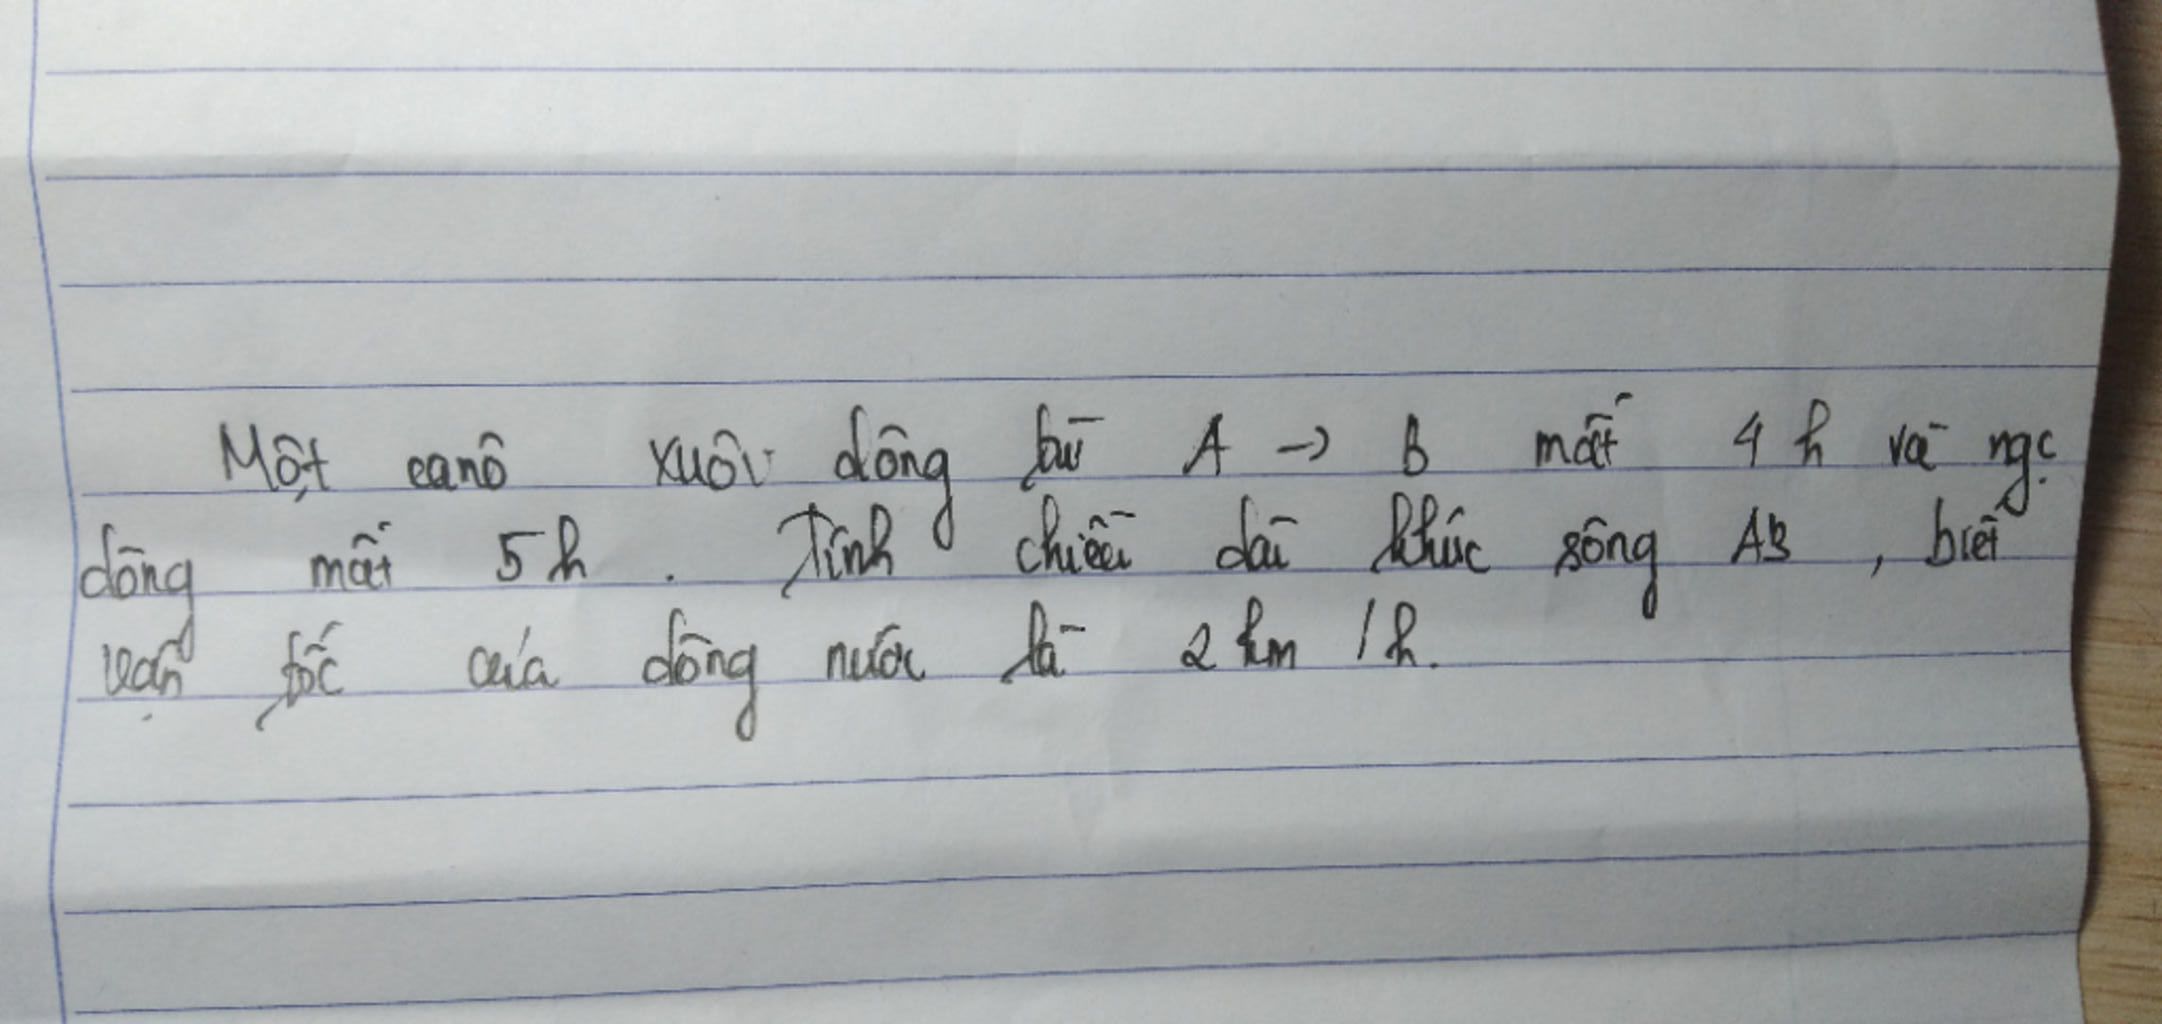 Một canô xuôi dòng từ A → B mất 4 h và ngc
dòng mất 5 h . Tính chiều dài khúc sông AB , biết
vận tốc của dòng nước là 2 km / h.